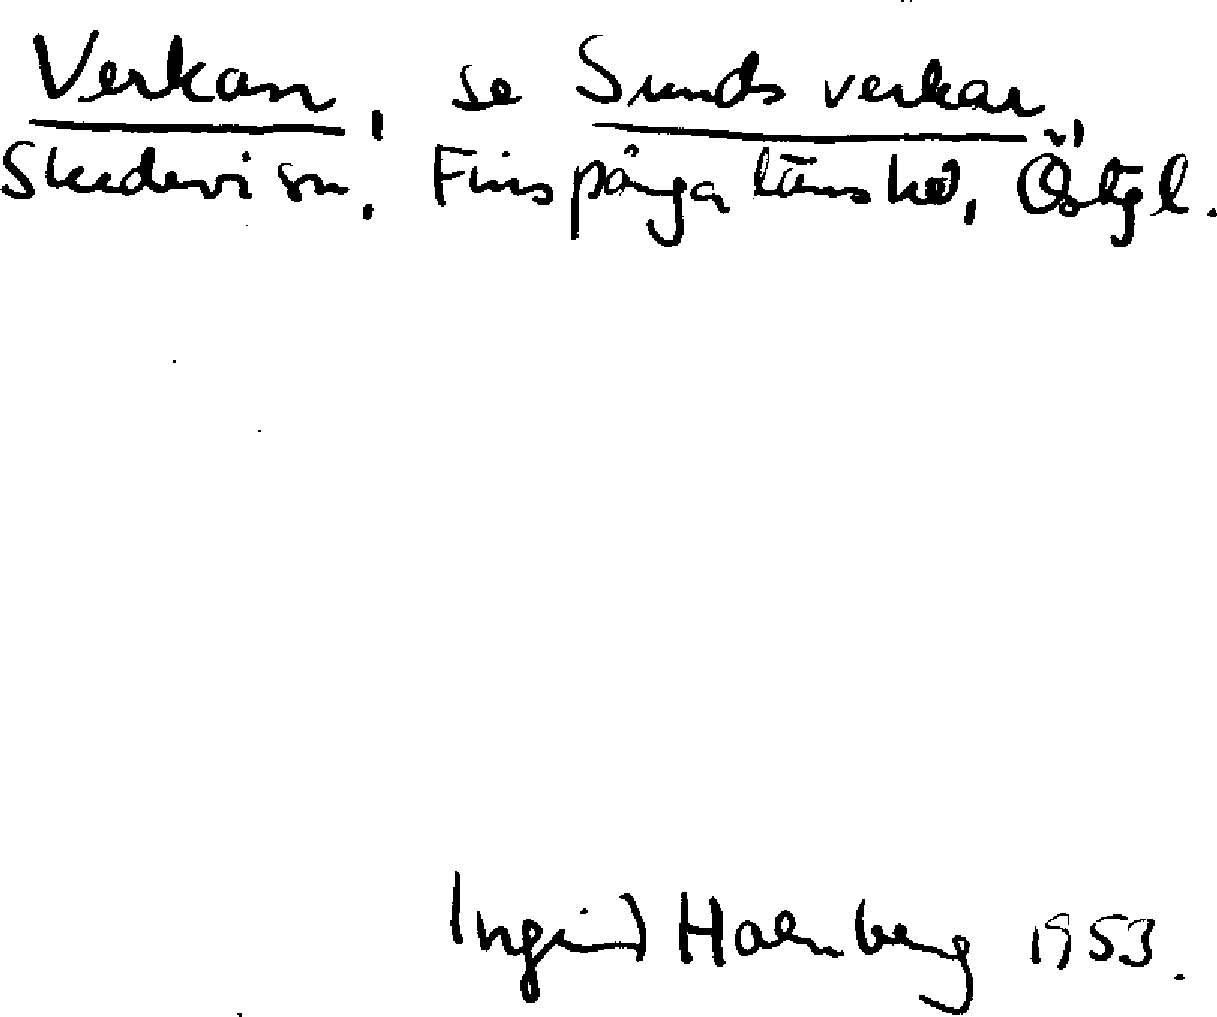 Verkarn, se Sunds verkar
Skedevi sn, Finspånga läns hd, Östgl.
Ingrid Holmberg 1953.